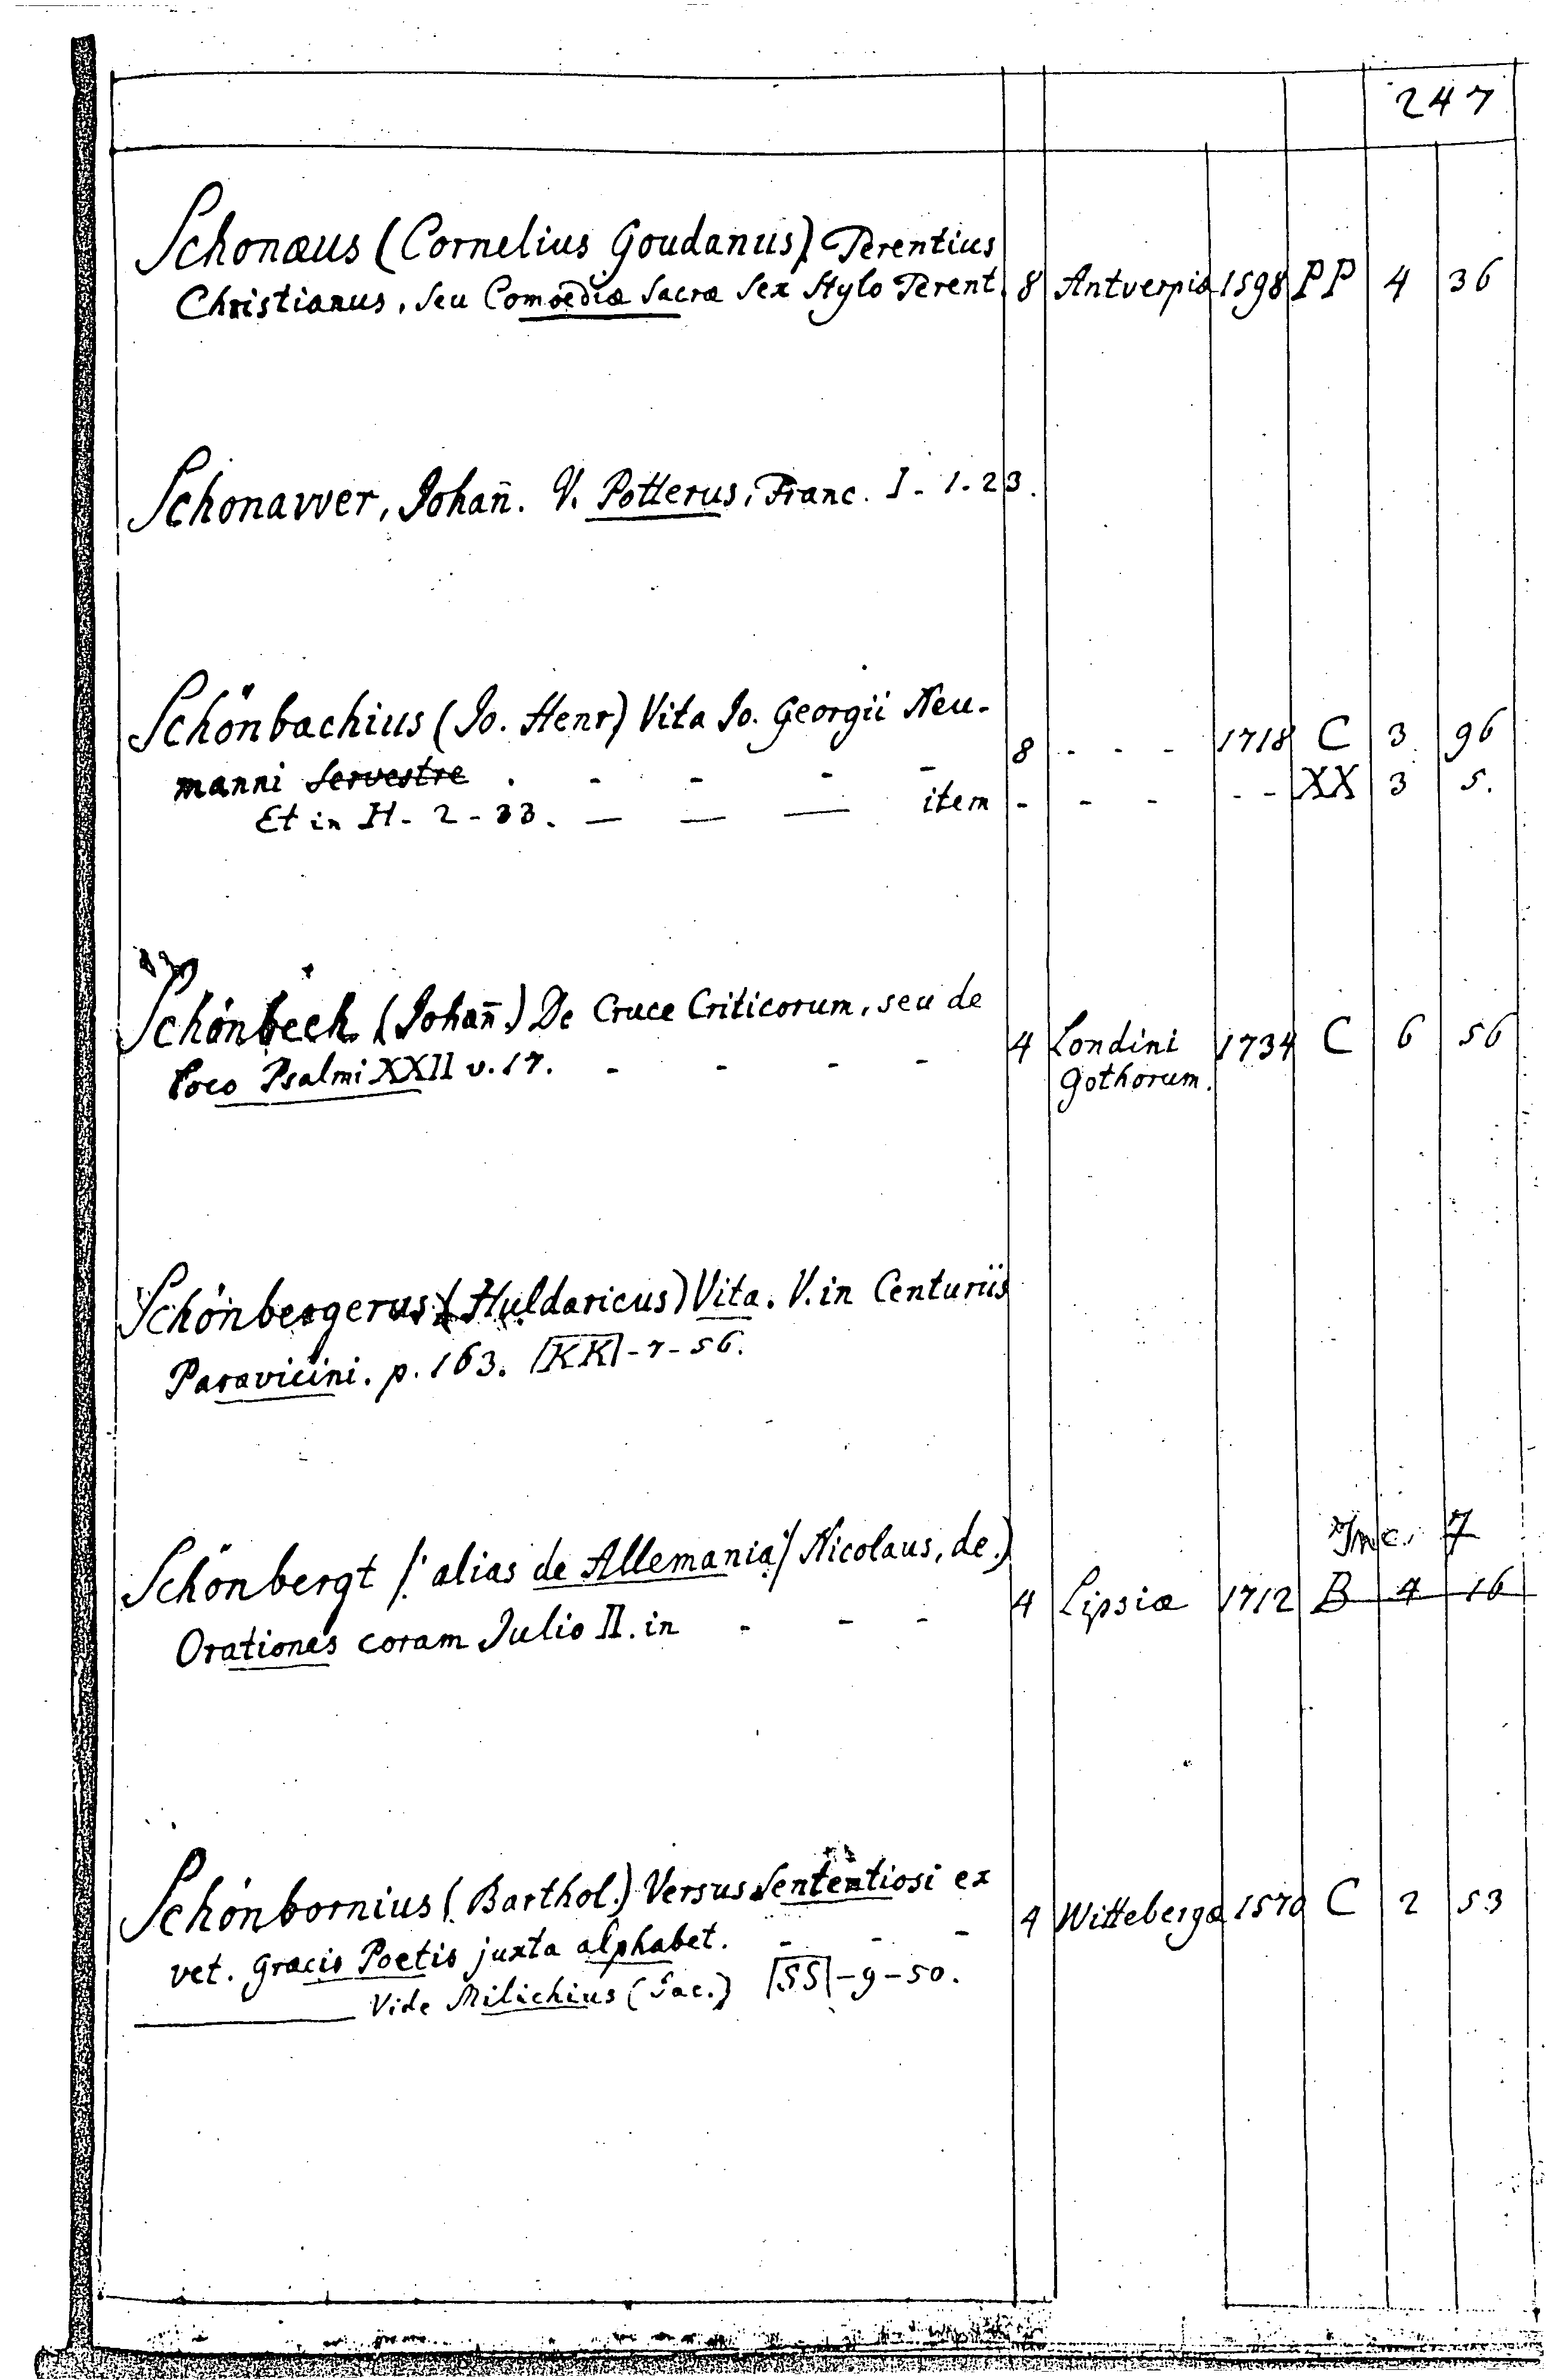 247
Schonæus (Cornelius Goudanus) Terentius
Christianus, seu Comoediæ Sacræ Sex Stylo Terent. 8 Antverpiæ 1598 PP 4 36
Schonavver, Johan̄. V. Potterus, Franc. I - 1. 23.
Schönbachius (Jo. Henr) Vita Jo. Georgii Neu-
manni Servestre . - - - - 8 - - - 1718 C 3 96
Et in H - 2 - 33. — — — item - - - - - XX 3 5.
Schönbeck (Johan̄.) De Cruce Criticorum, seu de
loco Psalmi XXII v. 17. - - - - 4 Londini 1734 C 6 56
Gothorum.
Schönbergerus (Huldaricus) Vita. V. in Centuriis
Paravicini. p. 163. KK - 7 - 56.
Inc. 7
Schönbergt /: alias de Allemania :/ Nicolaus, de.)
Orationes coram Julio II. in - - - 4 Lipsiæ 1712 B 4 16
Schönbornius (Barthol.) Versus Sententiosi ex
vet. Græcis Poetis juxta alphabet. - - - 4 Wittebergæ 1570 C 2 53
Vide Milichius (Jac.) SS - 9 - 50.